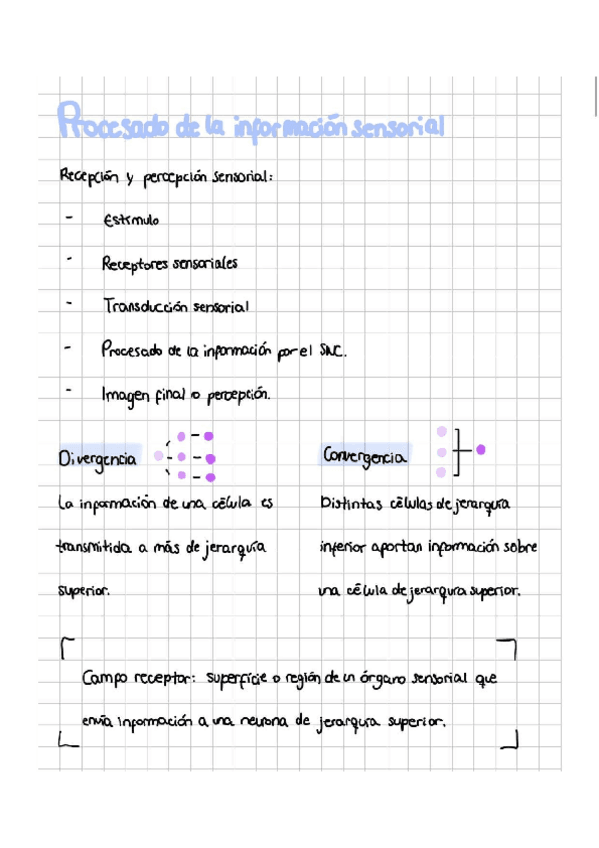 Procesado de la información sensorial
Recepción y percepción sensorial:
- Estímulo
- Receptores sensoriales
- Transducción sensorial
- Procesado de la información por el SNC.
- Imagen final o percepción.
Divergencia
La información de una célula es
transmitida a más de jerarquía
superior.
Convergencia
Distintas células de jerarquía
inferior aportan información sobre
una célula de jerarquía superior.
Campo receptor: superficie o región de un órgano sensorial que
envía información a una neurona de jerarquía superior.